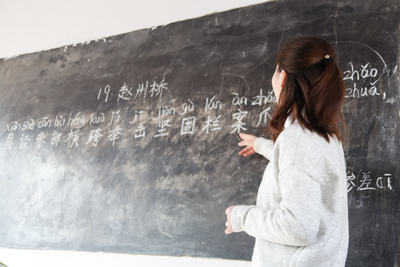 19 赵州桥
xiàn shè cān bù héng kuà jǔ jī jiān gù lán àn zhǎo
县设参部横跨举击坚固栏案爪
zhǎo
zhuǎ
参差cī